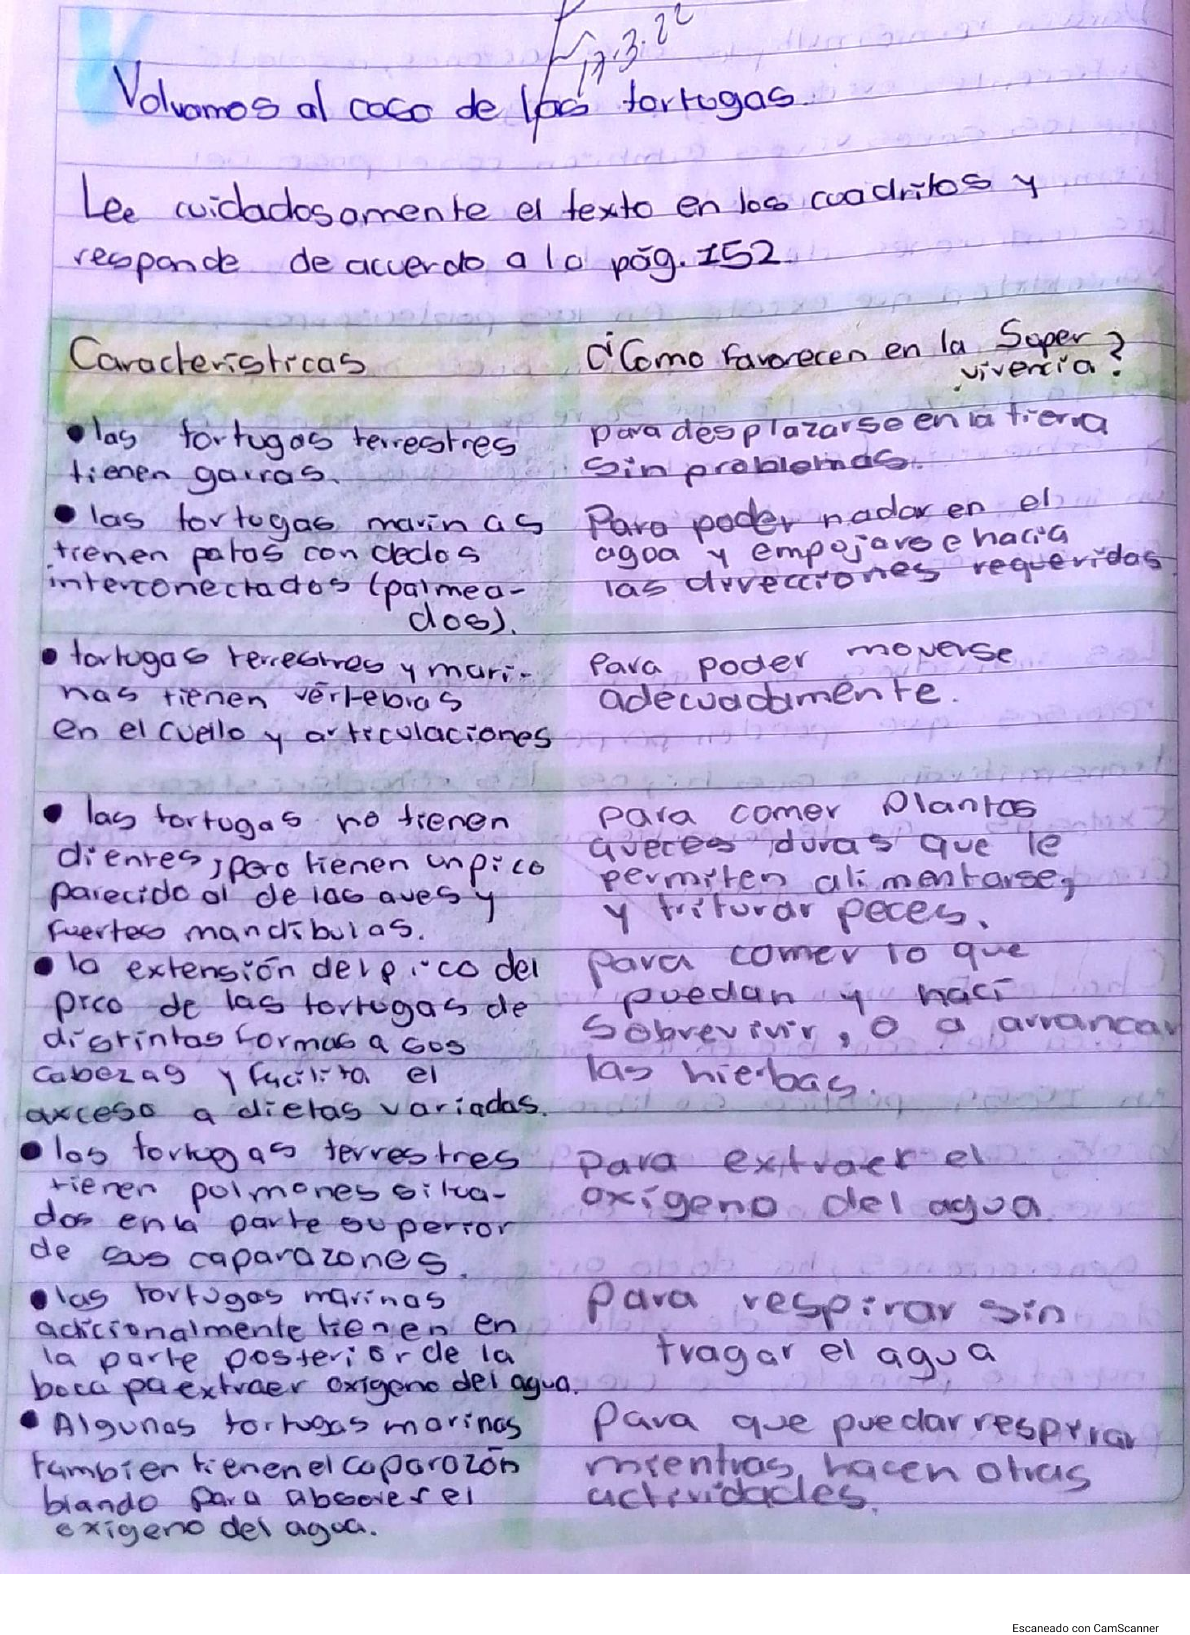 17.3.22
Volvamos al caso de las tortugas.
Lee cuidadosamente el texto en los cuadritos y
responde de acuerdo a la pág. 152.
Características
¿Como favorecen en la Super
vivencia?
• las tortugas terrestres
tienen garras.
para desplazarse en la tierra
sin problemas.
• las tortugas marinas
tienen patas con dedos
interconectados (palmea-
dos).
Para poder nadar en el
agua y empujarse hacia
las direcciones requeridas
• tortugas terrestres y mari-
nas tienen vértebras
en el cuello y articulaciones
Para poder moverse
adecuadamente.
• las tortugas no tienen
dientes, pero tienen un pico
parecido al de las aves y
fuertes mandíbulas.
para comer plantas
aveces duras que le
permiten alimentarse,
y triturar peces.
• la extensión del pico del
pico de las tortugas de
distintas formas a sus
cabezas y facilita el
axceso a dietas variadas.
para comer lo que
puedan y haci
sobrevivir, o a arrancar
las hierbas.
• las tortugas terrestres
tienen pulmones situa-
dos en la parte superior
de sus caparazones.
para extraer el
oxígeno del agua.
• las tortugas marinas
adicionalmente tienen en
la parte posterior de la
boca pa extraer oxígeno del agua.
Para respirar sin
tragar el agua
• Algunas tortugas marinas
tambien tienen el caparazón
blando para absover el
exigeno del agua.
Para que puedar respirar
mientras hacen otras
actividades.
Escaneado con CamScanner